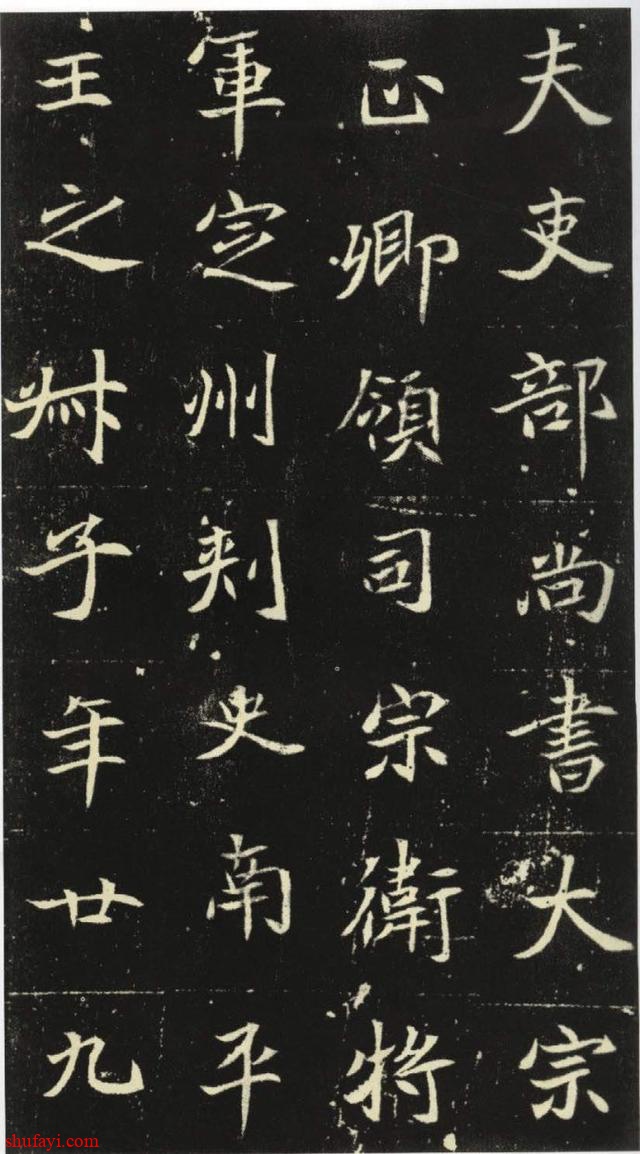 夫吏部尚書大宗
正卿領司宗衛將
軍定州刾史南平
王之叔子年廿九
shufayi.com